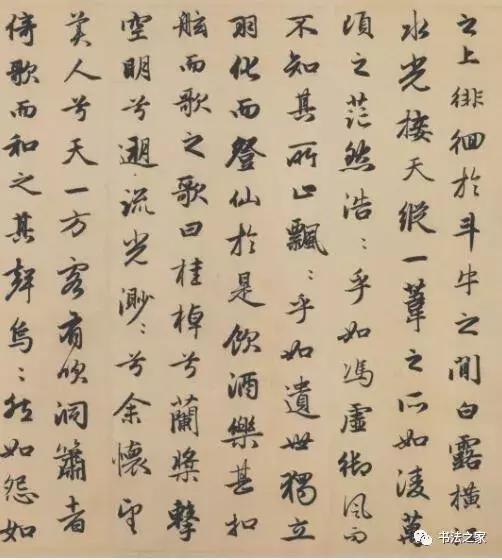 之上徘徊於斗牛之間白露橫江
水光接天縱一葦之所如淩萬
頃之茫然浩〻乎如馮虛御風而
不知其所止飄〻乎如遺世獨立
羽化而登仙於是飲酒樂甚扣
舷而歌之歌曰桂棹兮蘭槳擊
空明兮遡流光渺〻兮余懷望
美人兮天一方客有吹洞簫者
倚歌而和之其聲烏〻然如怨如
书法之家